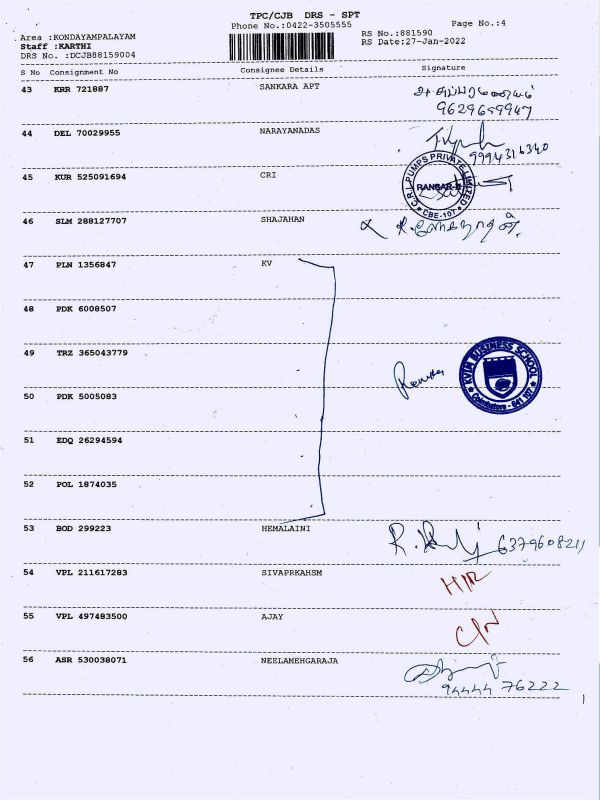 TPC/CJB DRS - SPT
Phone No.:0422-3505555
Page No.:4
Area :KONDAYAMPALAYAM
RS No.:881590
Staff :KARTHI
RS Date:27-Jan-2022
DRS No. :DCJB88159004
S No Consignment No Consignee Details Signature
43 KRR 721887 SANKARA APT
9629699947
44 DEL 70029955 NARAYANADAS
9994316340
45 KUR 525091694 CRI
C.R.I. PUMPS PRIVATE LIMITED
CBE-107
46 SLM 288127707 SHAJAHAN
47 PLN 1356847 KV
48 PDK 6008507
49 TRZ 365043779
KVIM BUSINESS SCHOOL
Coimbatore - 641 107
50 PDK 5005083
51 EDQ 26294594
52 POL 1874035
53 BOD 299223 HEMALAINI
6379608211
54 VPL 211617283 SIVAPRKAHSM
55 VPL 497483500 AJAY
56 ASR 530038071 NEELAMEHGARAJA
94444 76222